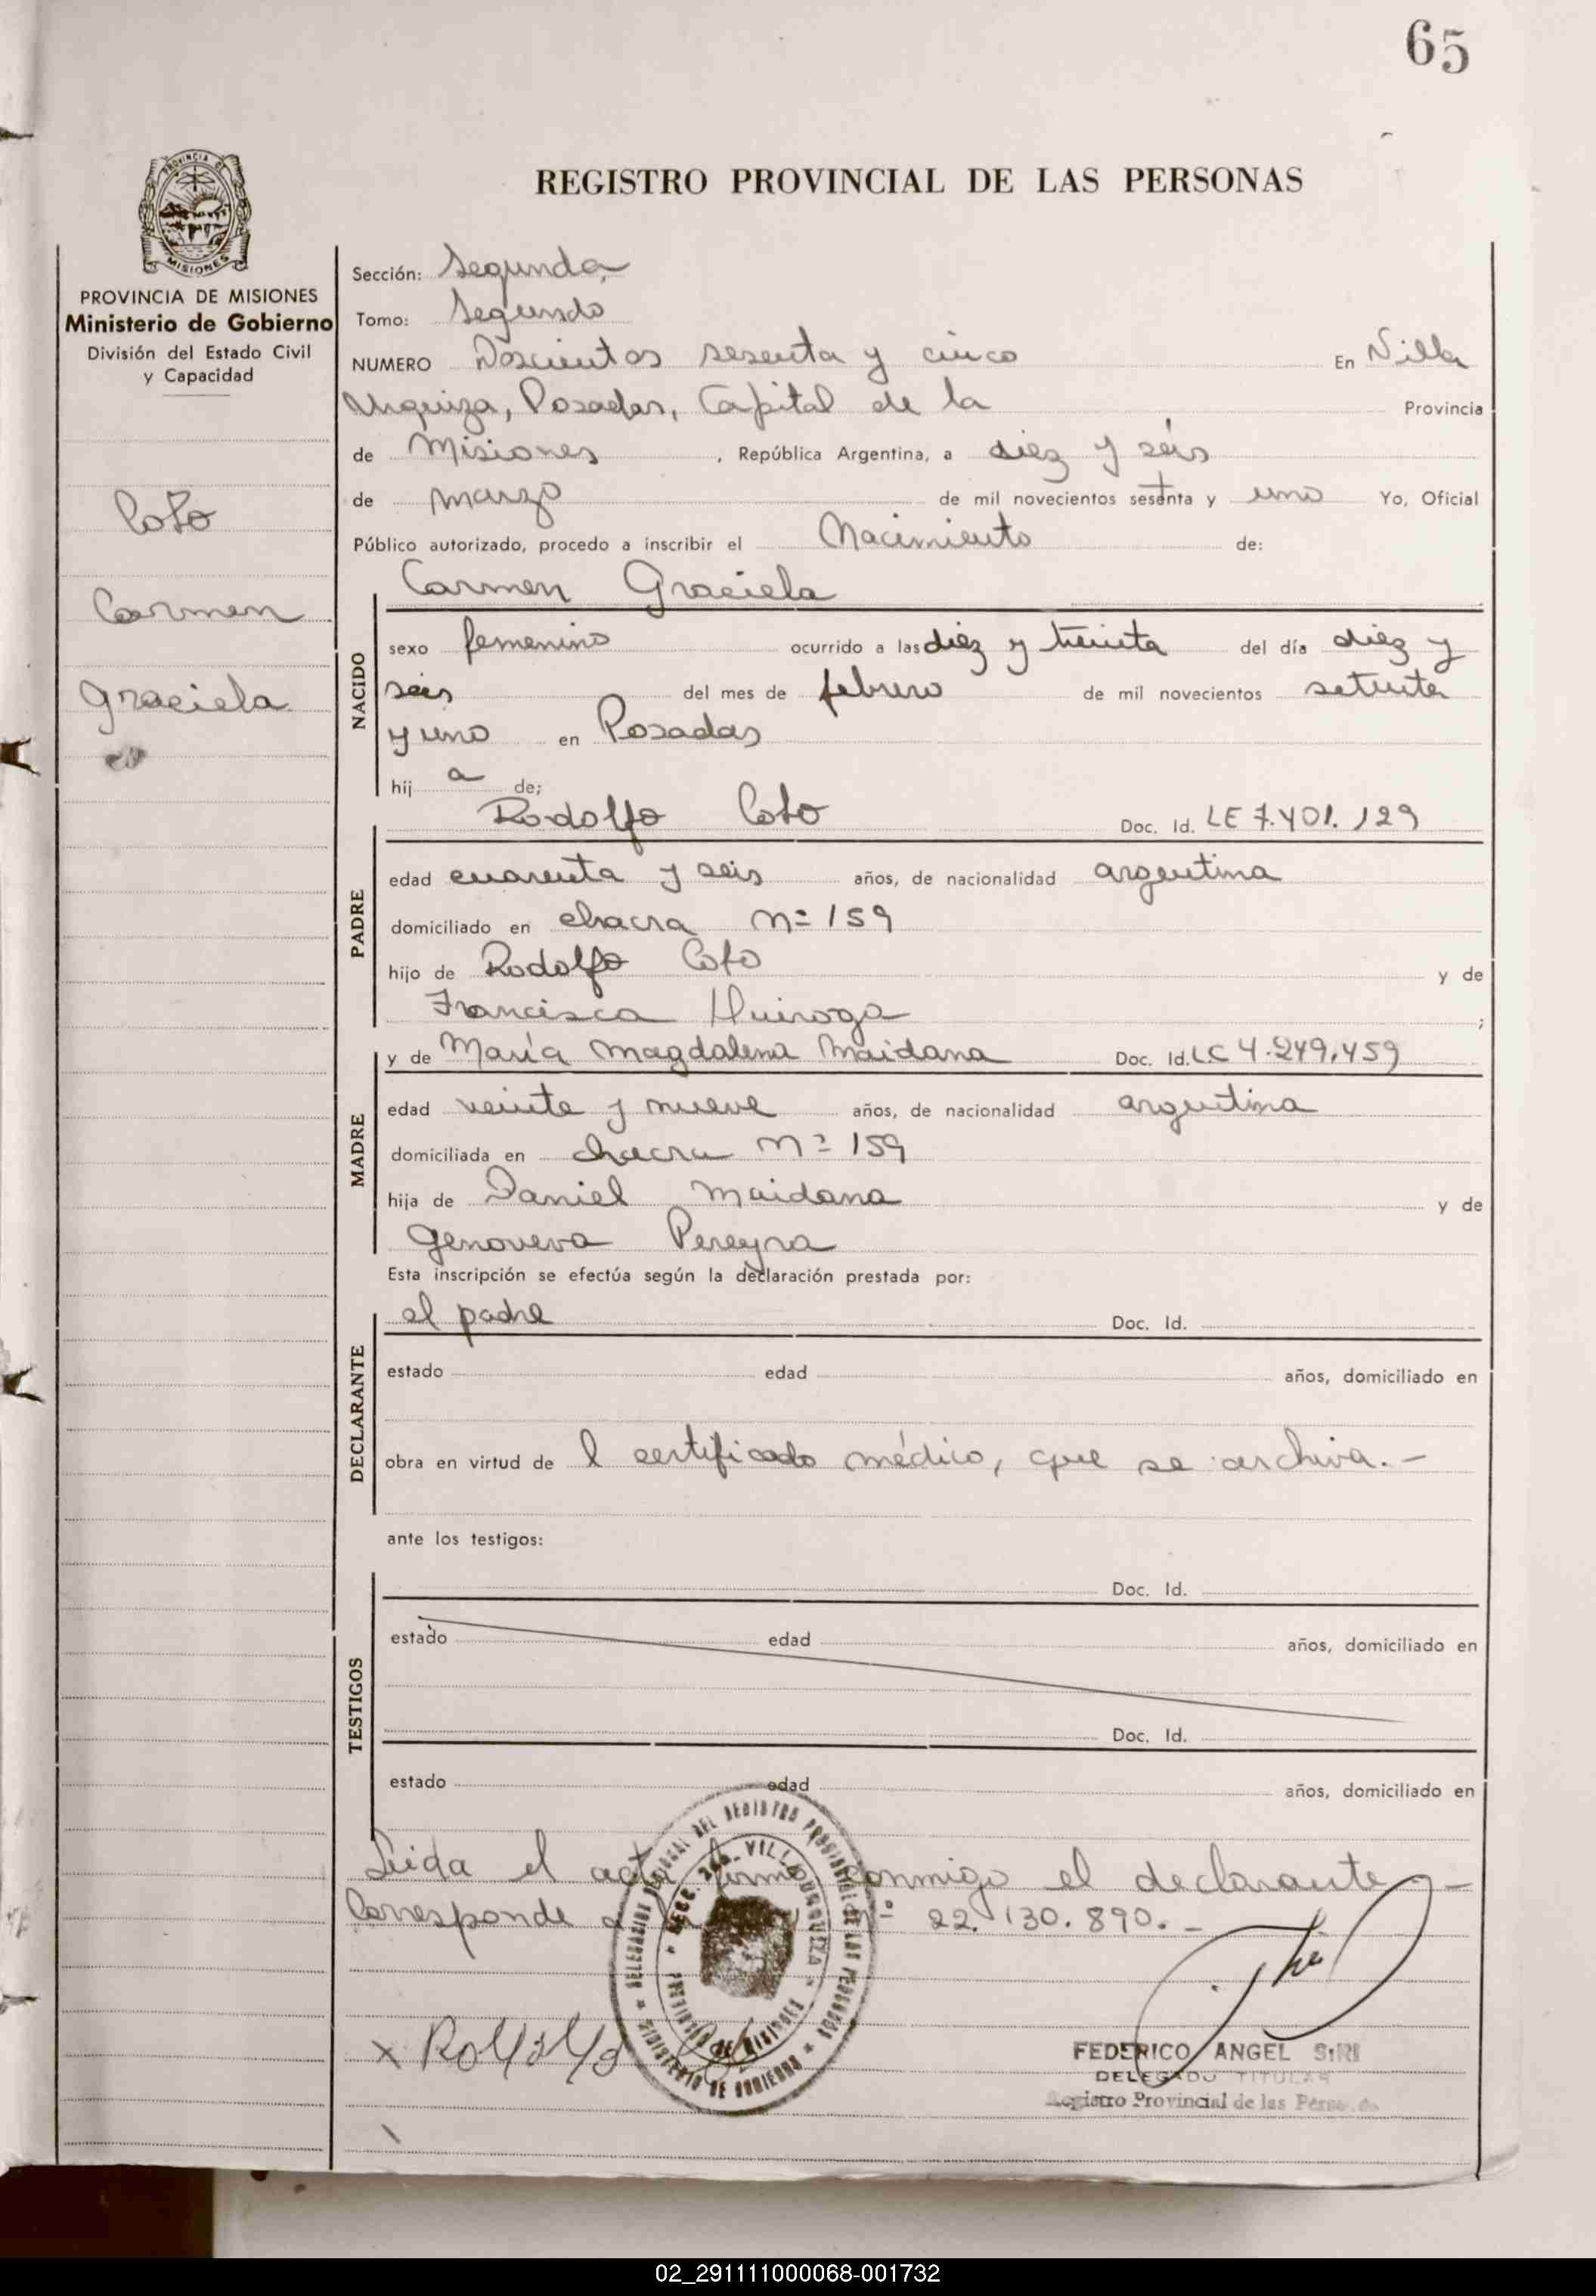 65
PROVINCIA DE MISIONES
PROVINCIA DE MISIONES
Ministerio de Gobierno
División del Estado Civil
y Capacidad
Coto
Carmen
Graciela
REGISTRO PROVINCIAL DE LAS PERSONAS
Sección: Segunda
Tomo: Segundo
NUMERO Doscientos sesenta y cinco En Villa
Urquiza, Posadas, Capital de la Provincia
de Misiones, República Argentina, a diez y seis
de marzo de mil novecientos setenta y uno Yo, Oficial
Público autorizado, procedo a inscribir el Nacimiento de:
Carmen Graciela
NACIDO
sexo femenino ocurrido a las diez y treinta del día diez y
seis del mes de febrero de mil novecientos setenta
y uno en Posadas
hij a de;
Rodolfo Coto Doc. Id. LE 7.401.129
PADRE
edad cuarenta y seis años, de nacionalidad argentina
domiciliado en chacra Nº 159
hijo de Rodolfo Coto y de
Francisca Quiroga ;
y de María Magdalena Maidana Doc. Id. LC 4.249.459
MADRE
edad veinte y nueve años, de nacionalidad argentina
domiciliada en chacra Nº 159
hija de Daniel Maidana y de
Genoveva Pereyra
Esta inscripción se efectúa según la declaración prestada por:
el padre Doc. Id.
DECLARANTE
estado edad años, domiciliado en
obra en virtud de l certificado médico, que se archiva.-
ante los testigos:
Doc. Id.
TESTIGOS
estado edad años, domiciliado en
Doc. Id.
estado edad años, domiciliado en
Leida el acta firma conmigo el declarante.-
Corresponde a Nº 22.130.890.-
DELEGACION DEL REGISTRO PROVINCIAL DE LAS PERSONAS
SECC. 2da. VILLA URQUIZA
PROVINCIA DE MISIONES
MINISTERIO DE GOBIERNO
x Rodolfo
FEDERICO ANGEL SIRI
DELEGADO TITULAR
Registro Provincial de las Personas
02_291111000068-001732